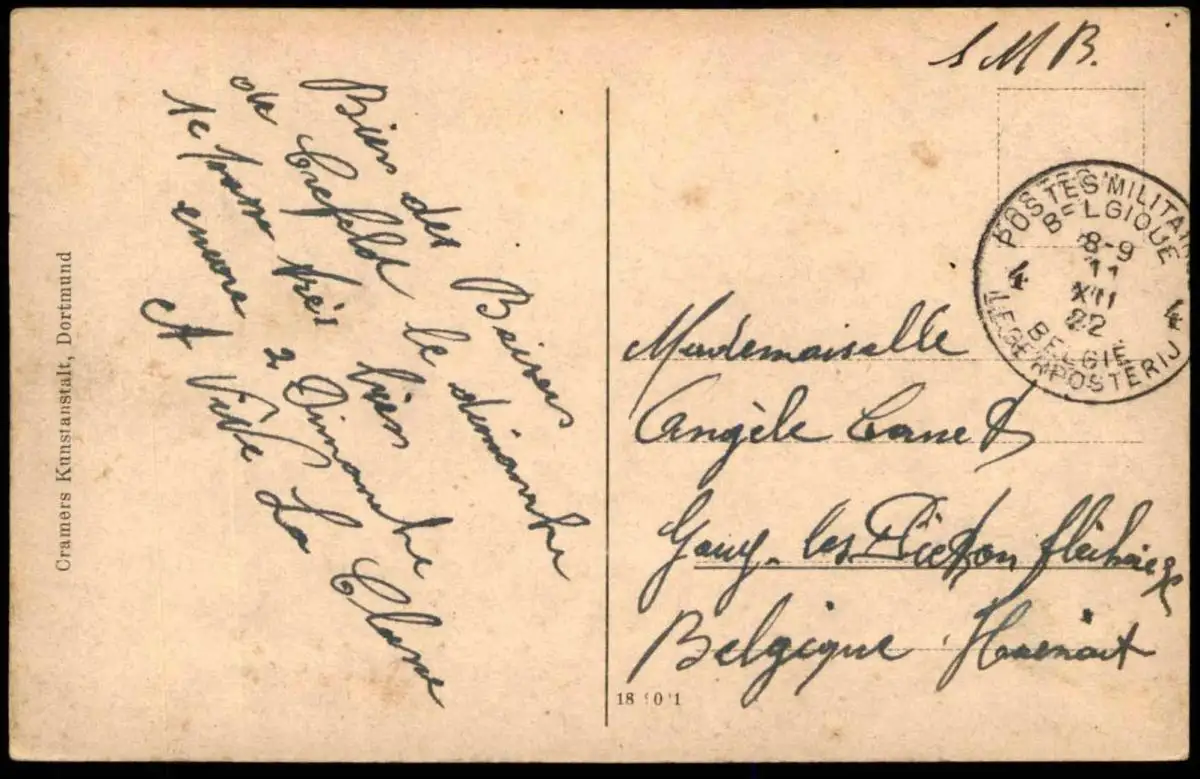 S M B.
Bien des Baisers
de Crefeld le dimanche
Je passe très bien
encore 2 Dimanche
Et Vive La Classe
Cramers Kunstanstalt, Dortmund
POSTES MILITAI
BELGIQUE
8-9
11
XII
22
4 4
BELGIE
LEGERPOSTERIJ
Mademoiselle
Angèle Canet
Gouy-les Pièton
Belgique Hainait
18 901